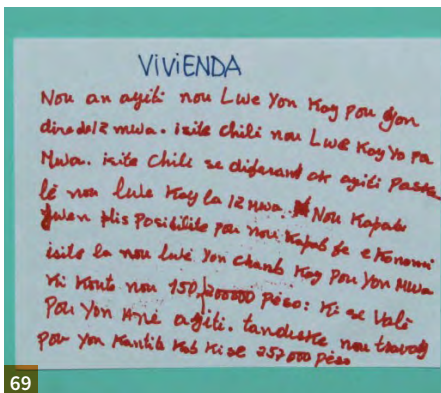 VIVIENDA
Nou an ayiti nou Lwe yon Kay pou yon
dire de 12 mwa. isite chili nou Lwe Kay yo pa
Mwa. isite chili se diferant ak ayiti Paske
lè nou lwe Kay la 12 Mwa. Nou Kapab
jwen plis Posibilite pou nou Kapab fe ekonomi
isite la nou lwe yon chanb Kay pou yon Mwa
Ki Koute nou 150,200000 peso: Ki se Valè
Pou yon Ane ayiti. tandiske nou travay
pou yon Kantite Kob Ki se 257000 peso
69